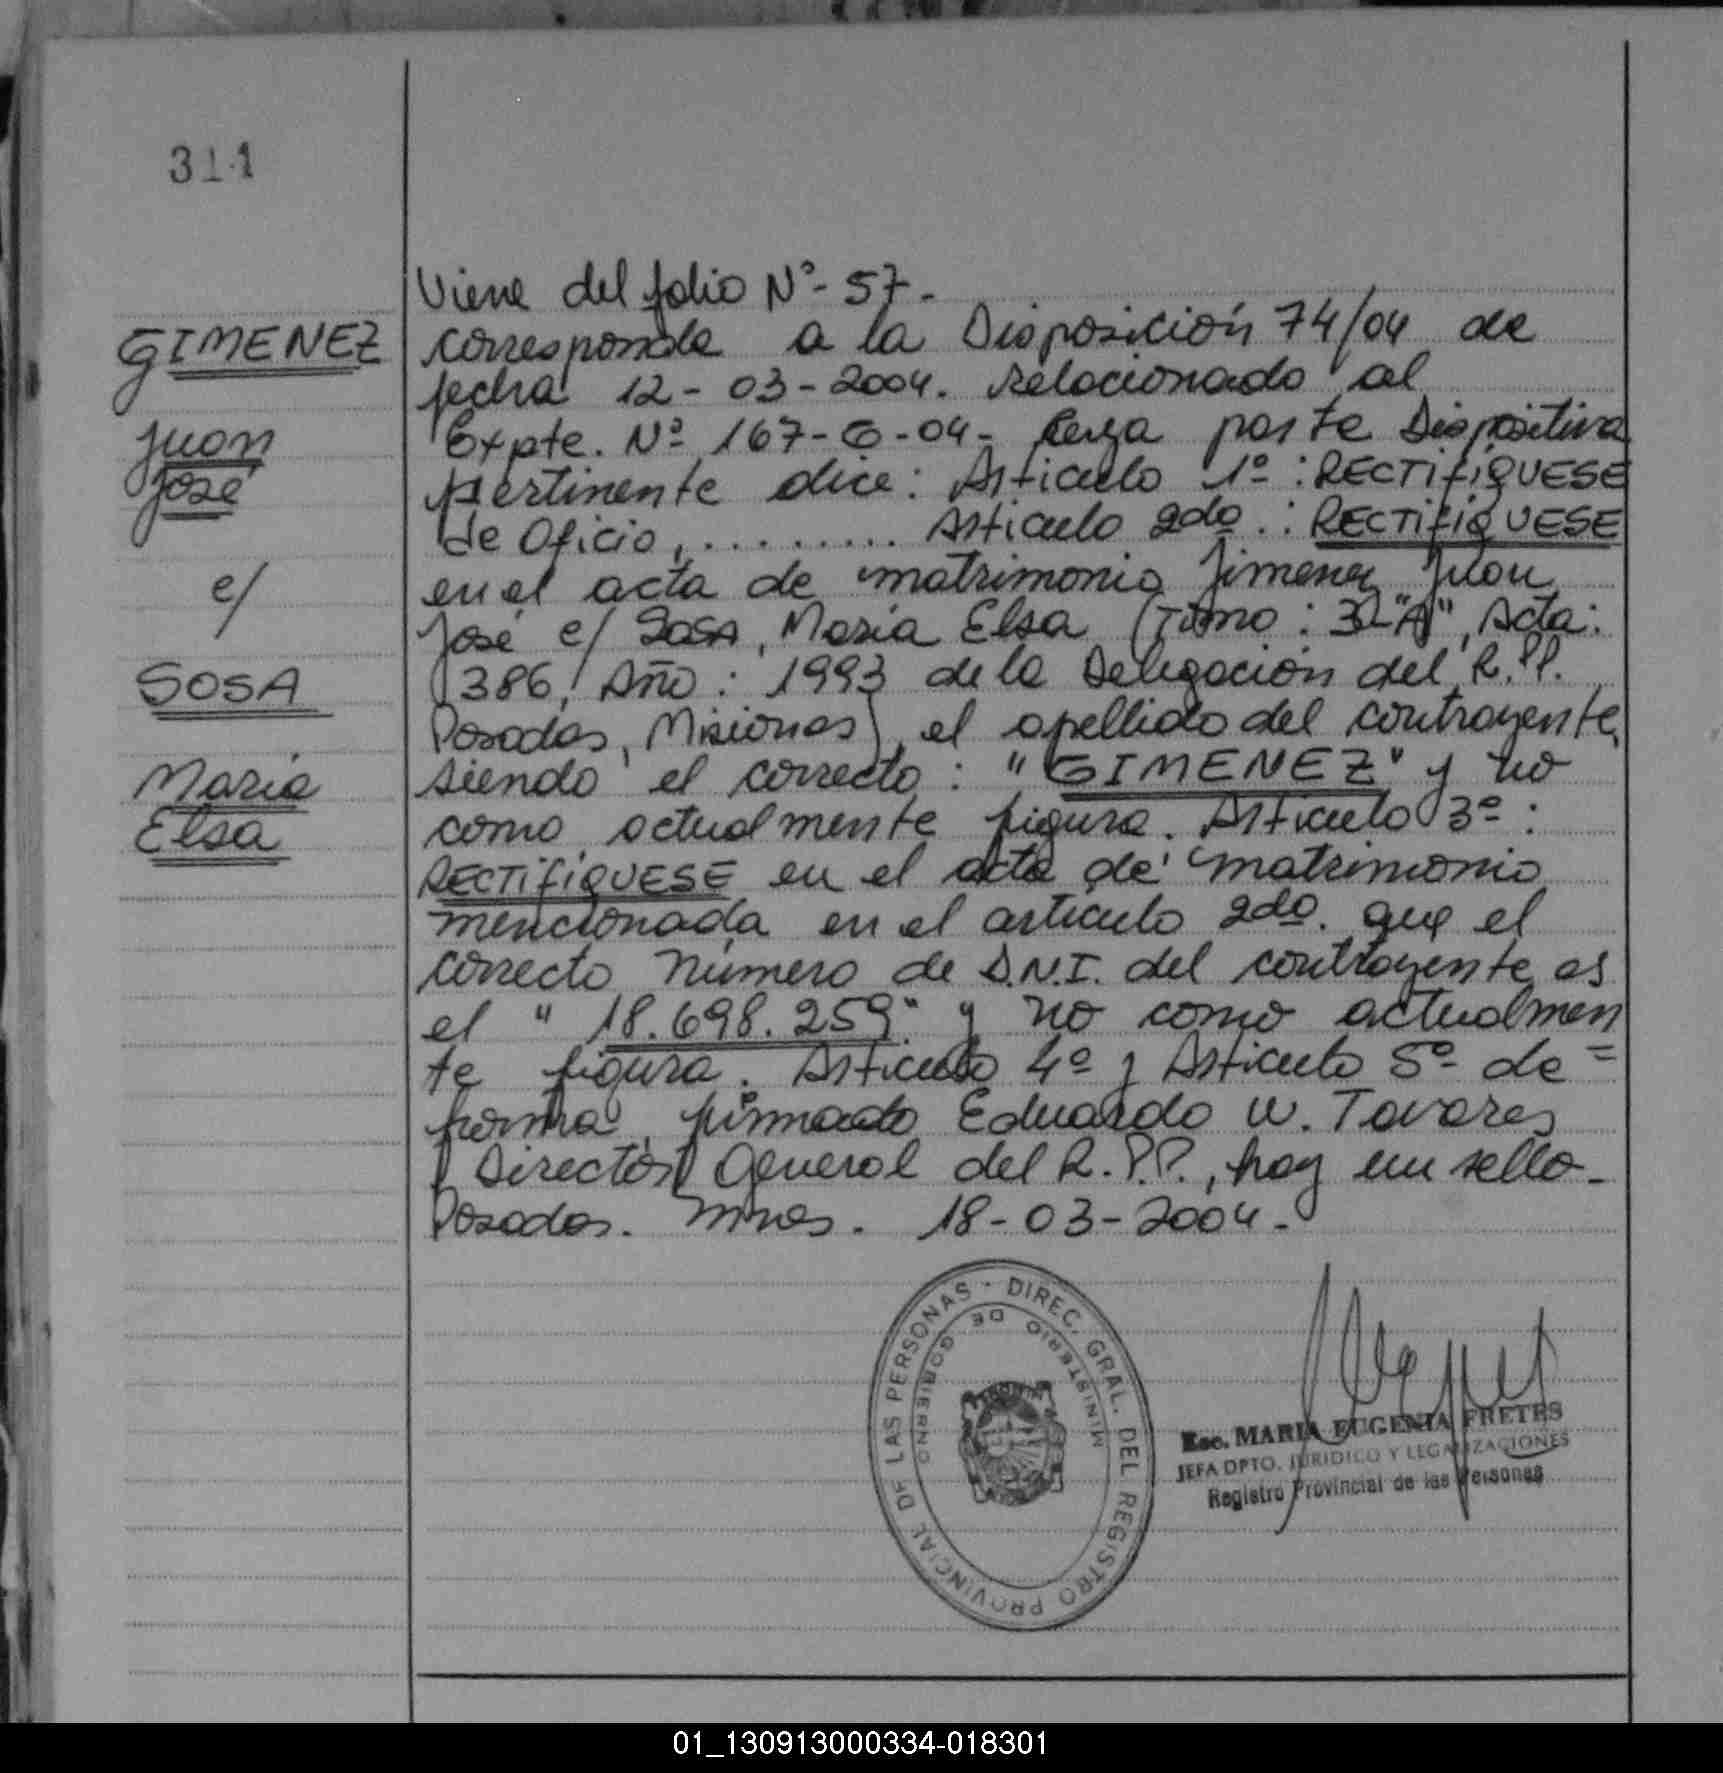 311
GIMENEZ
Juan
José
c/
SOSA
María
Elsa
Viene del folio Nº- 57-
corresponde a la Disposición 74/04 de
fecha 12-03-2004. relacionado al
Expte. Nº 167-G-04- cuya parte Dispositiva
pertinente dice: Articulo 1º: RECTIFIQUESE
de Oficio, ......... Articulo 2do.: RECTIFIQUESE
en el acta de matrimonio Jimenez Juan
José c/ SOSA, María Elsa (Tomo: 3 "A", Acta:
386, Año: 1993 de la Delegación del R.P.P.
Posadas, Misiones), el apellido del contrayente,
siendo el correcto: "GIMENEZ" y no
como actualmente figura. Articulo 3º:
RECTIFIQUESE en el acta de matrimonio
mencionada en el articulo 2do. que el
correcto número de D.N.I. del contrayente es
el "18.698.259" y no como actualmen
te figura. Articulo 4º y Articulo 5º de =
forma, firmado Eduardo W. Tavares
Director General del R.P.P., hay un sello-
Posadas. Mnes. 18-03-2004-
DIREC. GRAL. DEL REGISTRO PROVINCIAL DE LAS PERSONAS -
MINISTERIO DE GOBIERNO
Esc. MARIA EUGENIA FRETES
JEFA DPTO. JURIDICO Y LEGALIZACIONES
Registro Provincial de las Personas
01_130913000334-018301